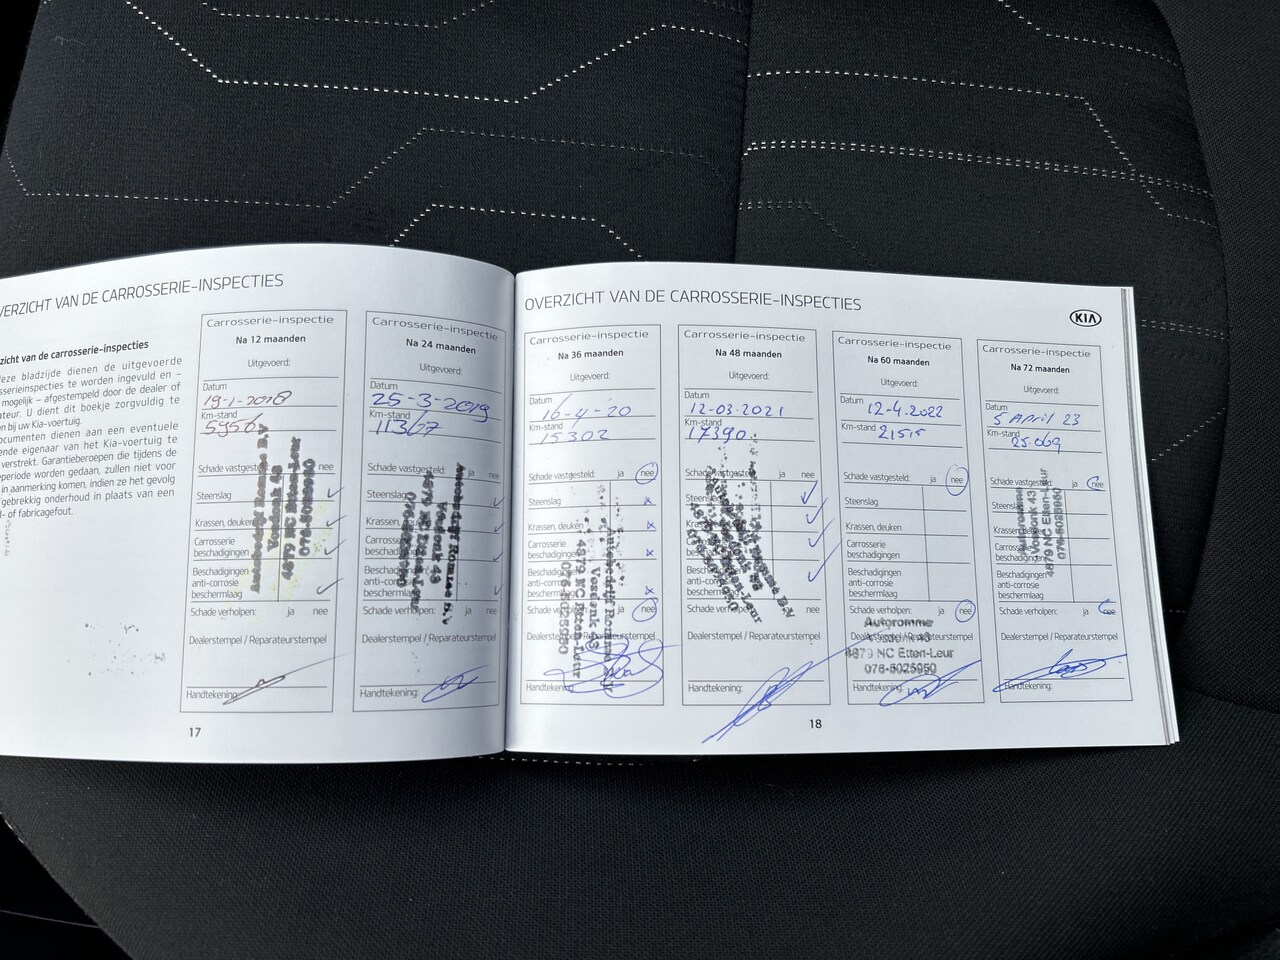 VERZICHT VAN DE CARROSSERIE-INSPECTIES
zicht van de carrosserie-inspecties
eze bladzijde dienen de uitgevoerde
sserieinspecties te worden ingevuld en –
mogelijk – afgestempeld door de dealer of
ateur. U dient dit boekje zorgvuldig te
en bij uw Kia-voertuig.
ocumenten dienen aan een eventuele
ende eigenaar van het Kia-voertuig te
verstrekt. Garantieberoepen die tijdens de
eperiode worden gedaan, zullen niet voor
in aanmerking komen, indien ze het gevolg
gebrekkig onderhoud in plaats van een
l- of fabricagefout.
Carrosserie-inspectie
Na 12 maanden
Uitgevoerd:
Datum
19-1-2018
Km-stand
5956
Schade vastgesteld: ja nee
Steenslag
Krassen, deuken
Carrosserie
beschadigingen
Beschadigingen
anti-corrosie
beschermlaag
Schade verholpen: ja nee
Dealerstempel / Reparateurstempel
Autobedrijf Romme B.V
Vosdonk 43
4879 NC Etten-Leur
076-5025950
Handtekening:
17
Carrosserie-inspectie
Na 24 maanden
Uitgevoerd:
Datum
25-3-2019
Km-stand
11367
Schade vastgesteld: ja nee
Steenslag
Krassen, deuken
Carrosserie
beschadigingen
anti-corrosie
beschermlaag
Schade verholpen: ja nee
Dealerstempel / Reparateurstempel
Vosdonk 43
Handtekening:
OVERZICHT VAN DE CARROSSERIE-INSPECTIES
KIA
Carrosserie-inspectie
Na 36 maanden
Uitgevoerd:
Datum
16-4-20
Km-stand
15302
Schade vastgesteld: ja nee
Steenslag
Krassen, deuken
Carrosserie
beschadigingen
Beschadigingen
anti-corrosie
beschermlaag
Schade verholpen: ja nee
Dealerstempel / Reparateurstempel
Autobedrijf Romme
Vosdonk 43
4879 NC Etten-Leur
076-5025950
Handtekening:
Carrosserie-inspectie
Na 48 maanden
Uitgevoerd:
Datum
12-03-2021
Km-stand
17390
Schade vastgesteld: ja nee
Steenslag
Krassen, deuken
Carrosserie
beschadigingen
anti-corrosie
beschermlaag
Schade verholpen: ja nee
Dealerstempel / Reparateurstempel
Handtekening:
Carrosserie-inspectie
Na 60 maanden
Uitgevoerd:
Datum
12-4.2022
Km-stand
Schade vastgesteld: ja nee
Steenslag
Krassen, deuken
Carrosserie
beschadigingen
Beschadigingen
anti-corrosie
beschermlaag
Schade verholpen: ja nee
Dealerstempel / Reparateurstempel
Autoromme
Vosdonk 43
4879 NC Etten-Leur
076-5025950
Handtekening:
Carrosserie-inspectie
Na 72 maanden
Uitgevoerd:
Datum
5 April 23
Km-stand
25.069
Schade vastgesteld: ja nee
Steenslag
Krassen, deuken
Carrosserie
beschadigingen
Beschadigingen
anti-corrosie
beschermlaag
Schade verholpen: ja nee
Dealerstempel / Reparateurstempel
Autoromme
Vosdonk 43
4879 NC Etten-Leur
076-5025950
Handtekening:
18